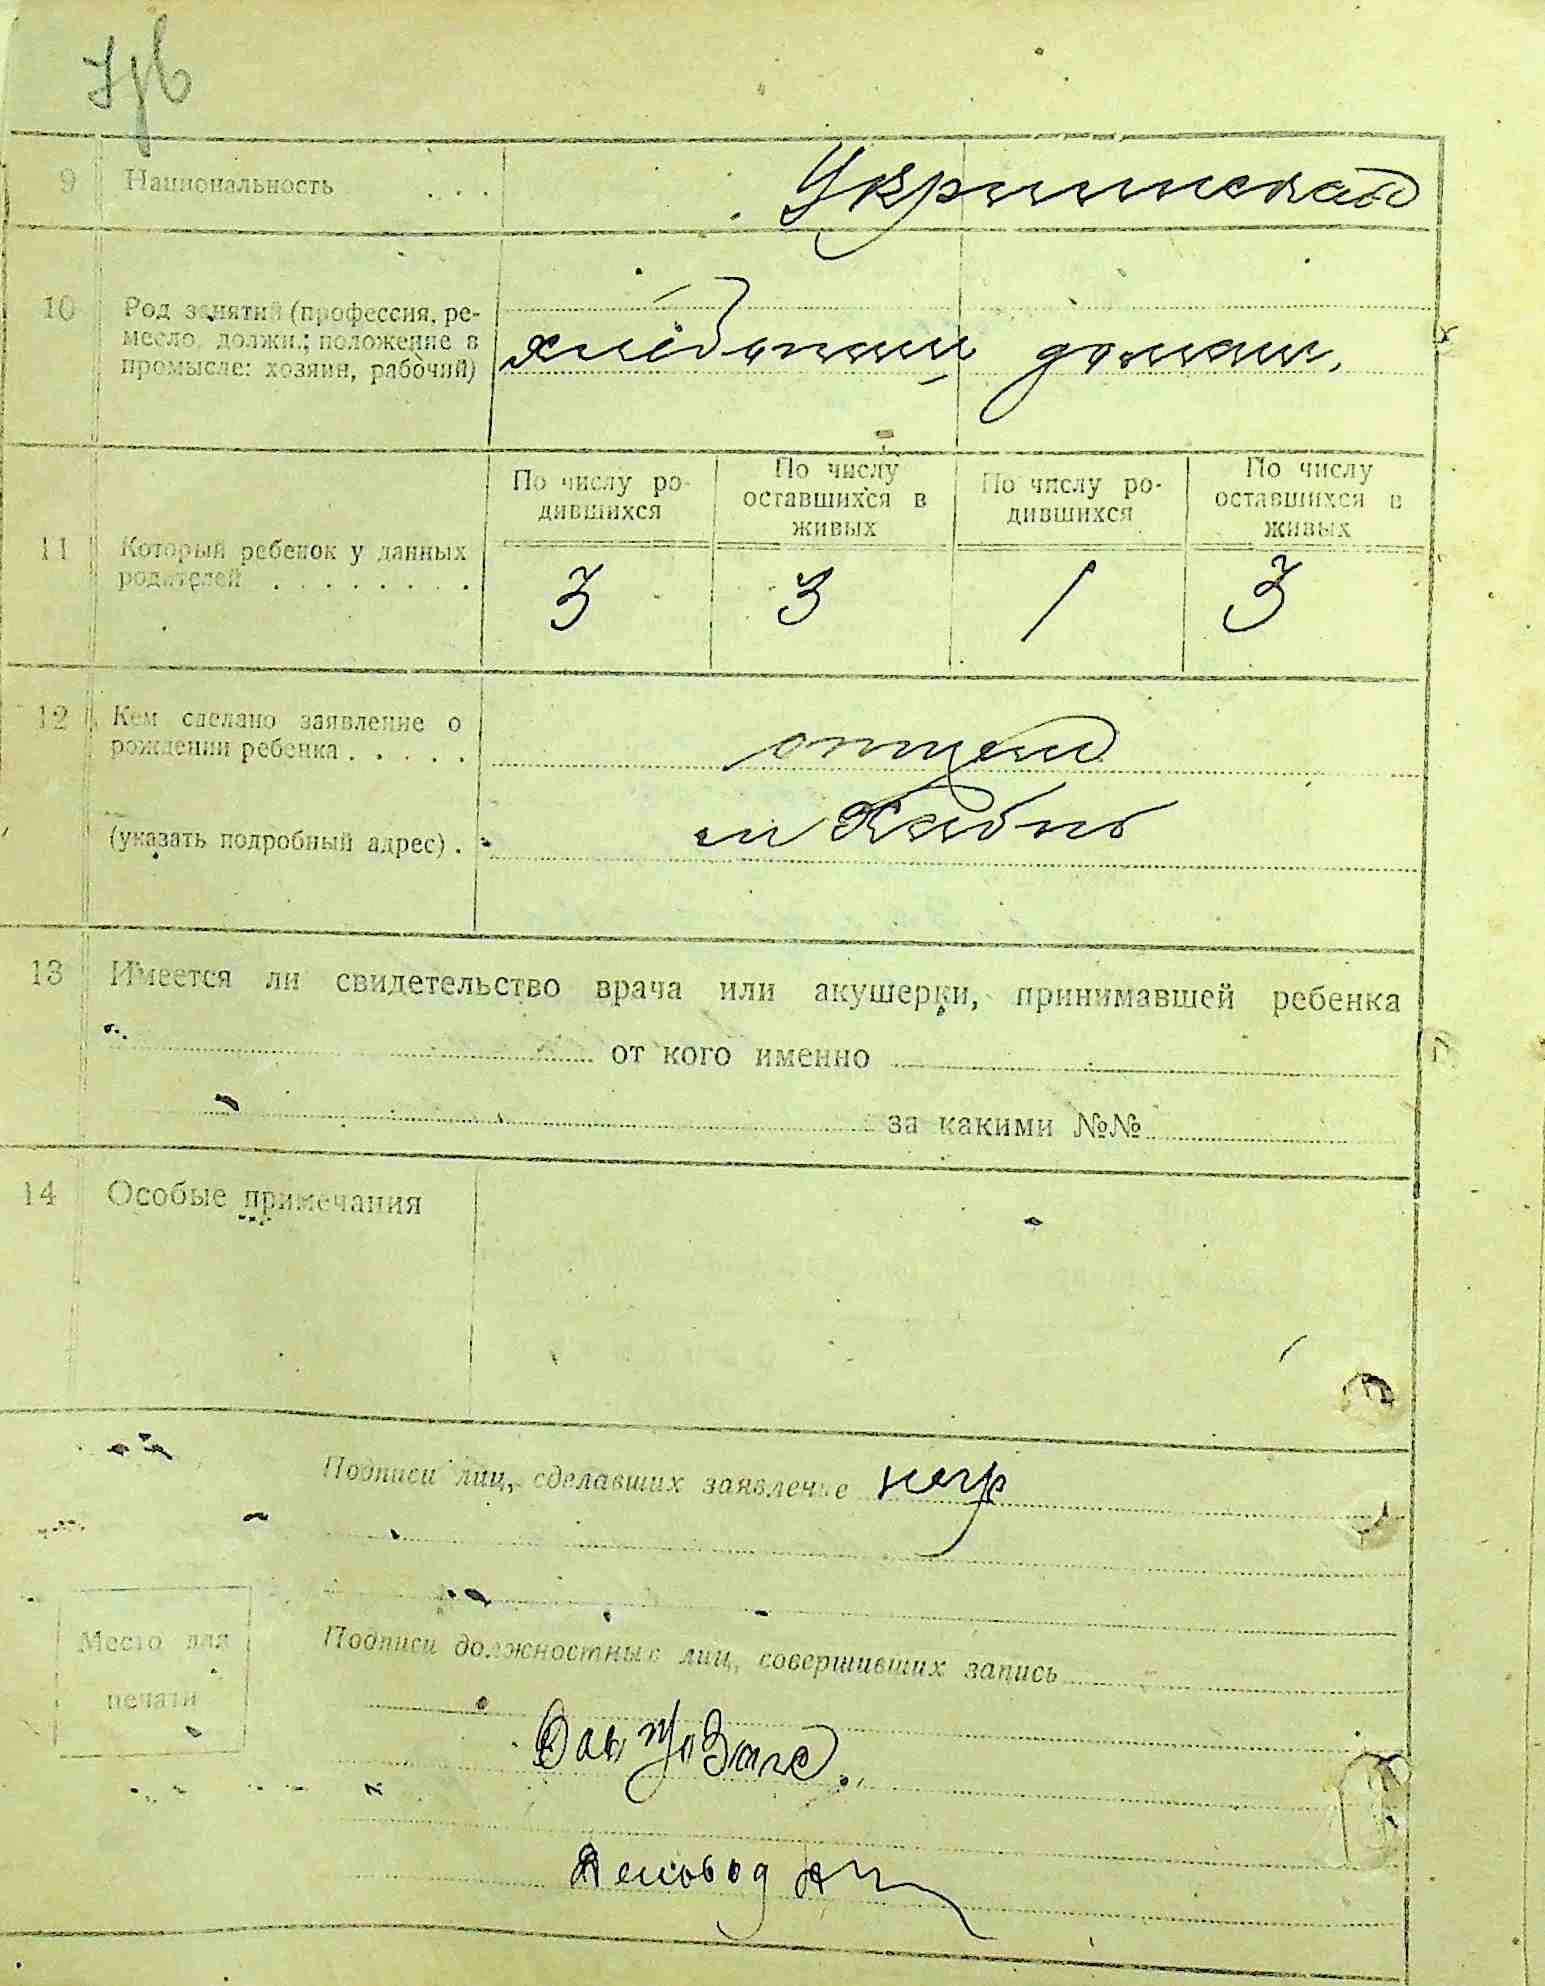 9 Национальность . . . Украинская
10 Род занятий (профессия, ре-
месло, должн.; положение в
промысле: хозяин, рабочий)
хлебопаш домаш.
По числу ро-
дившихся
По числу
оставшихся в
живых
По числу ро-
дившихся
По числу
оставшихся в
живых
11 Который ребенок у данных
родителей . . . . . . . .
3 3 1 3
12 Кем сделано заявление о
рождении ребенка . . . . .
отцем
(указать подробный адрес) .
м Хабно
13 Имеется ли свидетельство врача или акушерки, принимавшей ребенка
от кого именно
за какими №№
14 Особые примечания
Подписи лиц, сделавших заявление негр
Место для
печати
Подписи должностных лиц, совершивших запись
Зав Загс
Деловод